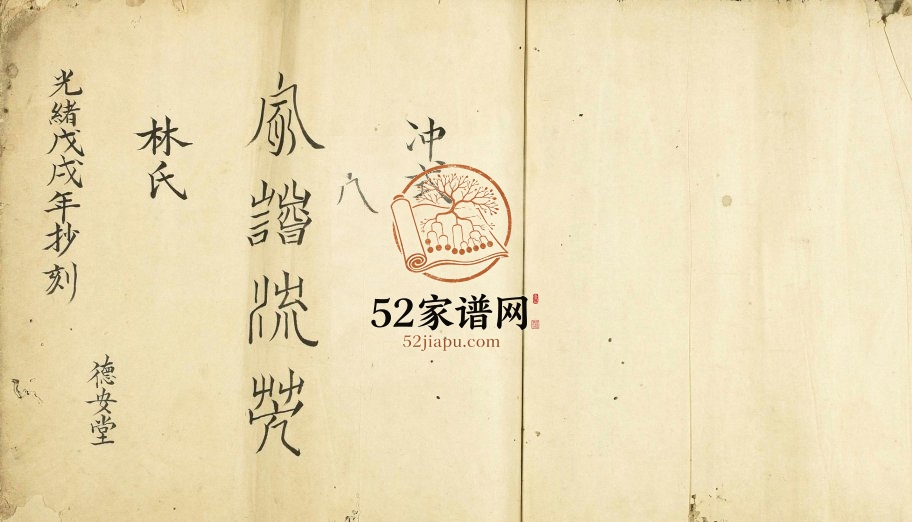 冲
八
家譜流芳
林氏
光緒戊戌年抄刻
德安堂
52家谱网
52jiapu.com